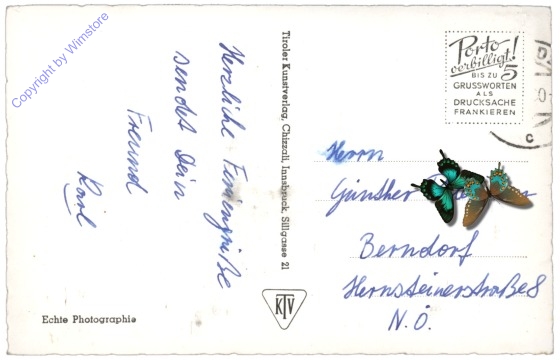 Copyright by Wimstore
Herzliche Feriengrüße
sendet Dein
Freund
Karl
Echte Photographie
Tiroler Kunstverlag, Chizzali, Innsbruck, Sillgasse 21
KTV
Porto
verbilligt!
BIS ZU 5
GRUSSWORTEN
ALS
DRUCKSACHE
FRANKIEREN
Herrn
Günther
Berndorf
Hernsteinerstraße 8
N.Ö.